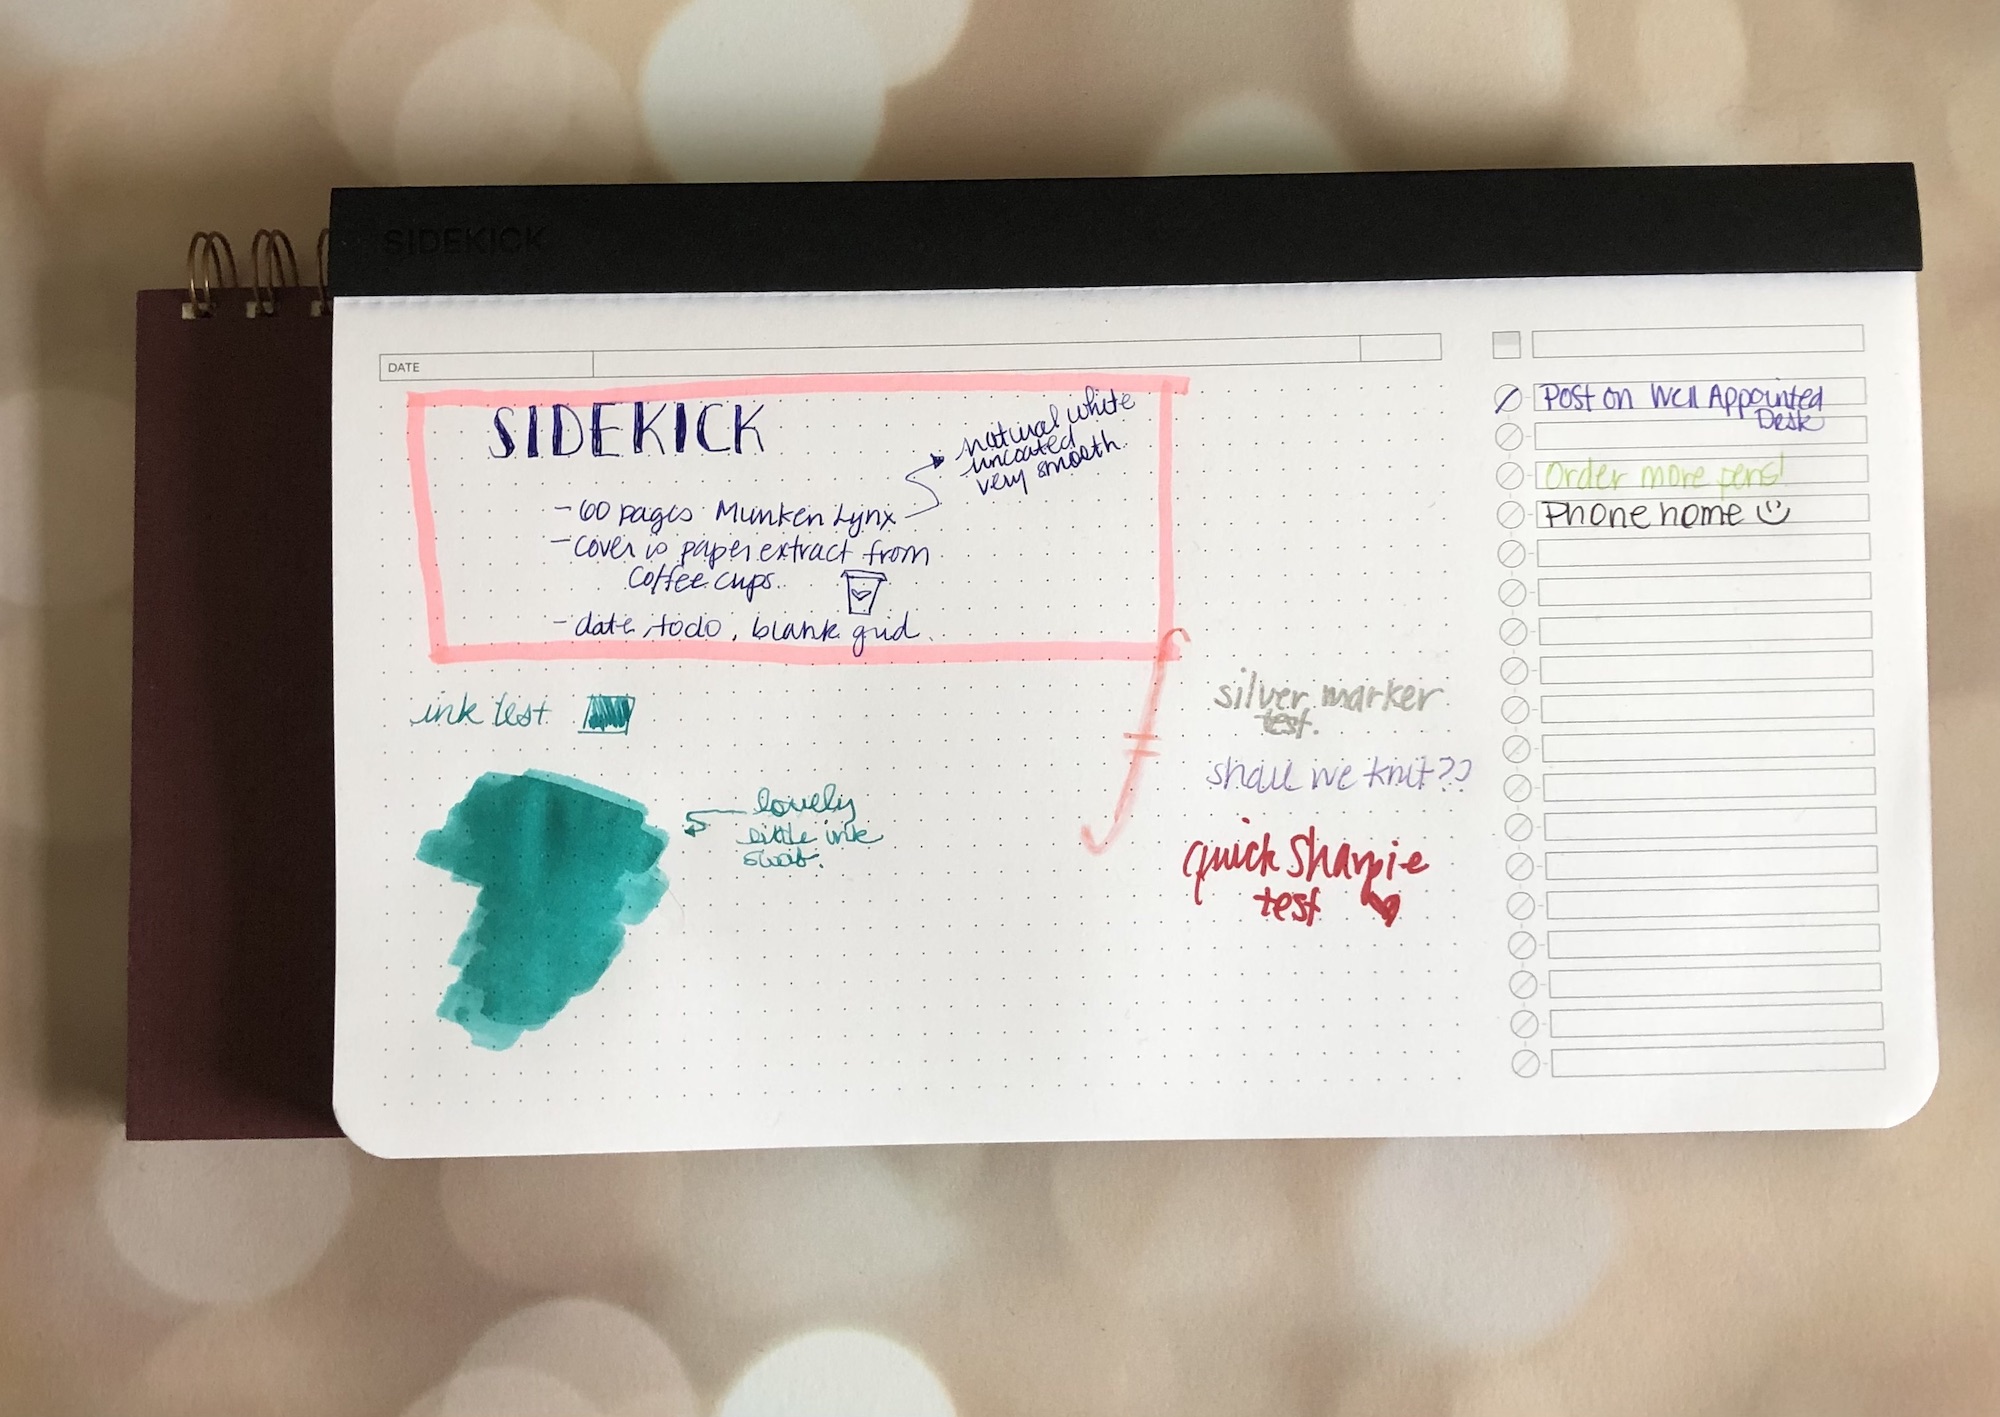 SIDEKICK
DATE
SIDEKICK
natural white
uncoated
very smooth.
- 60 pages Munken Lynx
- cover is paper extract from
coffee cups.
- date, todo, blank grid.
ink test
lovely
little ink
swab.
silver marker
test.
shall we knit??
quick Sharpie
test
Post on Well Appointed
Desk
Order more pens!
Phone home